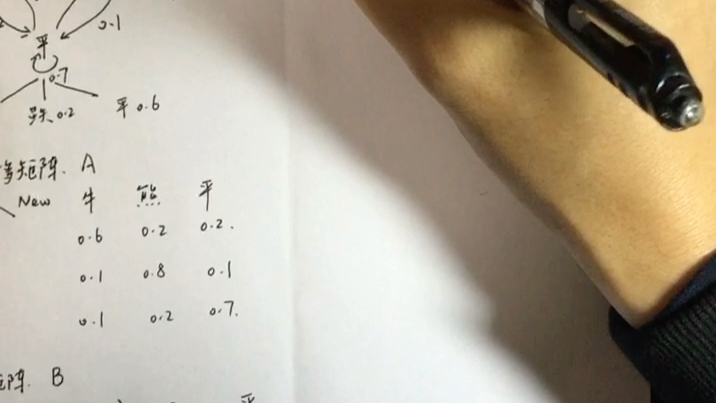 0.1
平
0.7
跌 0.2 平 0.6
移矩阵. A
New 牛 熊 平
0.6 0.2 0.2.
0.1 0.8 0.1
0.1 0.2 0.7.
矩阵. B
平